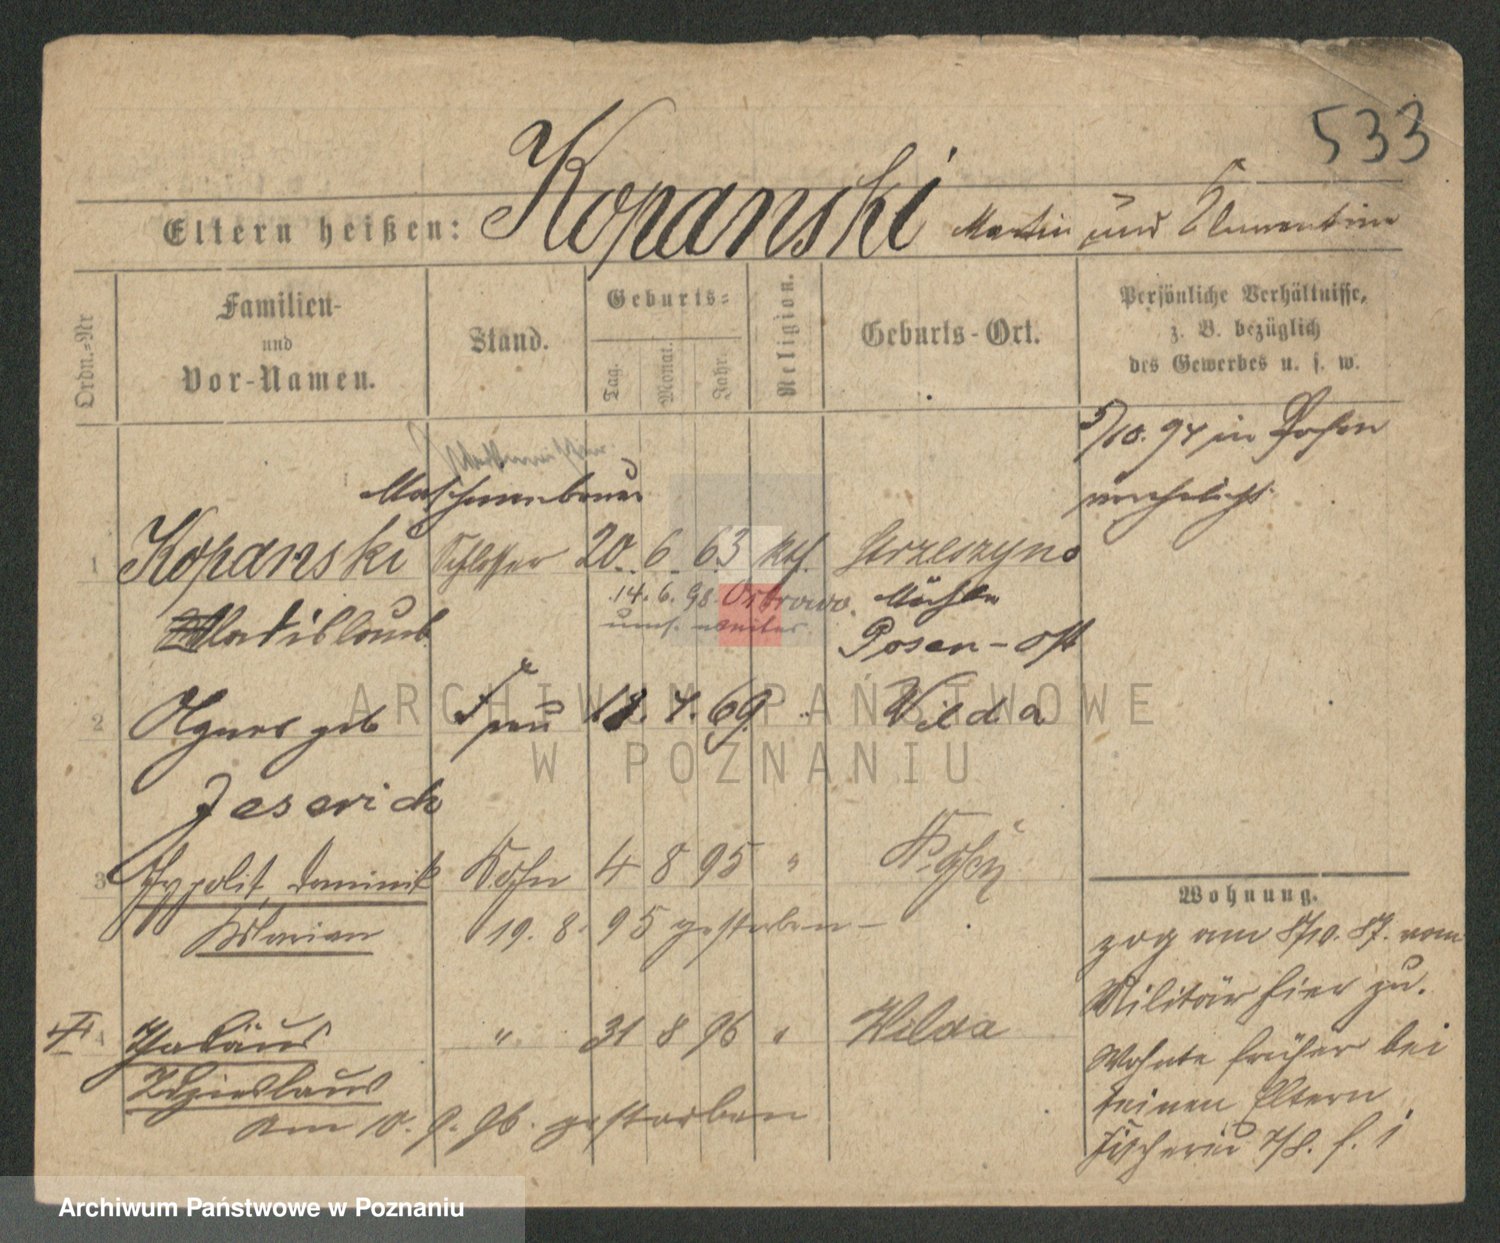 533
Eltern heißen: Kopanski Martin und Clementine
Ordn.-Nr
Familien-
und
Vor-Namen.
Stand.
Geburts-
Tag.
Monat.
Jahr.
Religion.
Geburts-Ort.
Persönliche Verhältnisse,
z. B. bezüglich
des Gewerbes u. s. w.
5/10. 94 in Posen
verehelicht
Maschinenbauer
1 Kopanski Schlosser 20. 6. 63 kth. Strzeszyno
14. 6. 98. Ostrowo. Mühle
Wladislaus umh. weiter. Posen-Ost
2 Agnes geb Frau 18. 4. 69. " Wilda
Jeserich
3 Hypolit, Dominik Sohn 4 8 95 "
Marian 19. 8. 95 gestorben -
4 Thadäus " 31 8 96 " Wilda
Zdzislaus
Am 10. 9. 96. gestorben
Wohnung.
zog am 8/10. 87. vom
Militär hier zu.
Wohnte früher bei
seinen Eltern
Fischerei 7/8. f. i
ARCHIWUM PAŃSTWOWE
W POZNANIU
Archiwum Państwowe w Poznaniu